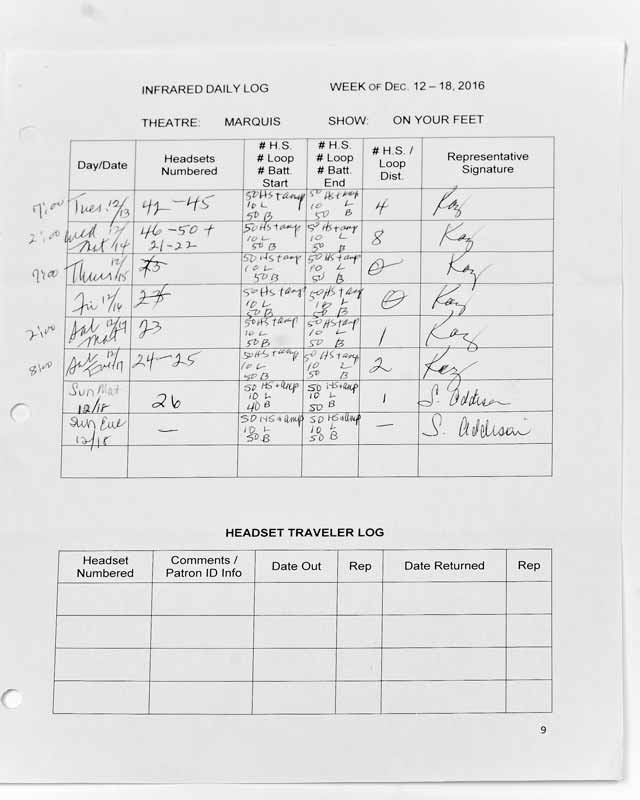 INFRARED DAILY LOG WEEK OF DEC. 12 – 18, 2016
THEATRE: MARQUIS SHOW: ON YOUR FEET
Day/Date Headsets Numbered # H.S. # Loop # Batt. Start # H.S. # Loop # Batt. End # H.S. / Loop Dist. Representative Signature
7:00 Tues. 12/13 42-45 50 HS + amp 10 L 50 B 50 HS + amp 10 L 50 B 4 Kay
2:00 Wed Mat 12/14 46-50 + 21-22 50 HS + amp 10 L 50 B 50 HS + amp 10 L 50 B 8 Kay
7:00 Thurs 12/15 50 HS + amp 10 L 50 B 50 HS + amp 10 L 50 B 0 Kay
Fri 12/16 50 HS + amp 10 L 50 B 50 HS + amp 10 L 50 B 0 Kay
2:00 Sat Mat 12/17 23 50 HS + amp 10 L 50 B 50 HS + amp 10 L 50 B 1 Kay
8:00 Sat Eve 12/17 24-25 50 HS + amp 10 L 50 B 50 HS + amp 10 L 50 B 2 Kay
Sun Mat 12/18 26 50 HS + amp 10 L 40 B 50 HS + amp 10 L 50 B 1 S. Addison
Sun Eve 12/18 — 50 HS + amp 10 L 50 B 50 HS + amp 10 L 50 B — S. Addison
HEADSET TRAVELER LOG
Headset Numbered Comments / Patron ID Info Date Out Rep Date Returned Rep
9